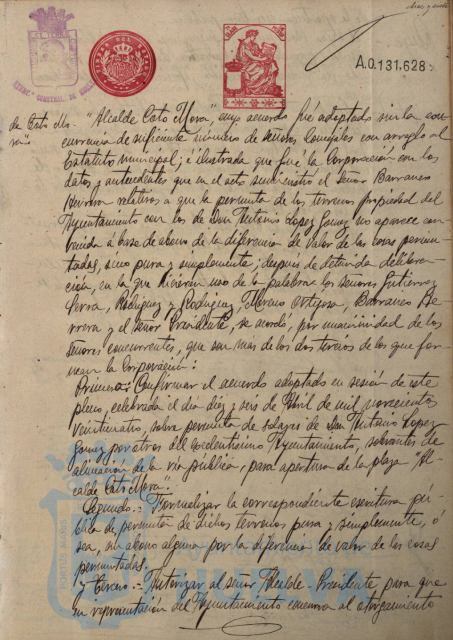 diez y siete
A.0.131.628
de Coto Mo-
ra
"Alcalde Coto Mora", cuyo acuerdo fué adoptado sin la con-
currencia de suficiente número de señores Concejales con arreglo al
Estatuto municipal; é ilustrada que fué la Corporación con los
datos y antecedentes que en el acto suministró el señor Barranco
Berrera relativos a que la permuta de los terrenos propiedad del
Ayuntamiento con los de Don Antonio Lopez Gomez no aparece con-
venida á base de abono de la diferencia de valor de las cosas permu-
tadas, sino pura y simplemente; después de detenida delibera-
ción, en la que hicieron uso de la palabra los señores Gutierrez
Serra, Rodriguez y Rodriguez, Moreno Ortigosa, Barranco Be-
rrera y el señor Presidente, se acordó, por unanimidad de los
señores concurrentes, que son mas de los dos tercios de los que for-
man la Corporación:
Primero: Confirmar el acuerdo adoptado en sesión de este
pleno, celebrada el dia diez y seis de Abril de mil novecientos
veinticuatro, sobre permuta de solares de Don Antonio Lopez
Gomez por otros del Excelentísimo Ayuntamiento, sobrantes de
alineación de la vía pública, para apertura de la plaza "Al-
calde Coto Mora".
Segundo.- Formalizar la correspondiente escritura pú-
blica de permuta de dichos terrenos pura y simplemente, ó
sea, sin abono alguno por la diferencia de valor de las cosas
permutadas.
y Tercero.- Autorizar al señor Alcalde-Presidente para que
en representación del Ayuntamiento concurra al otorgamiento